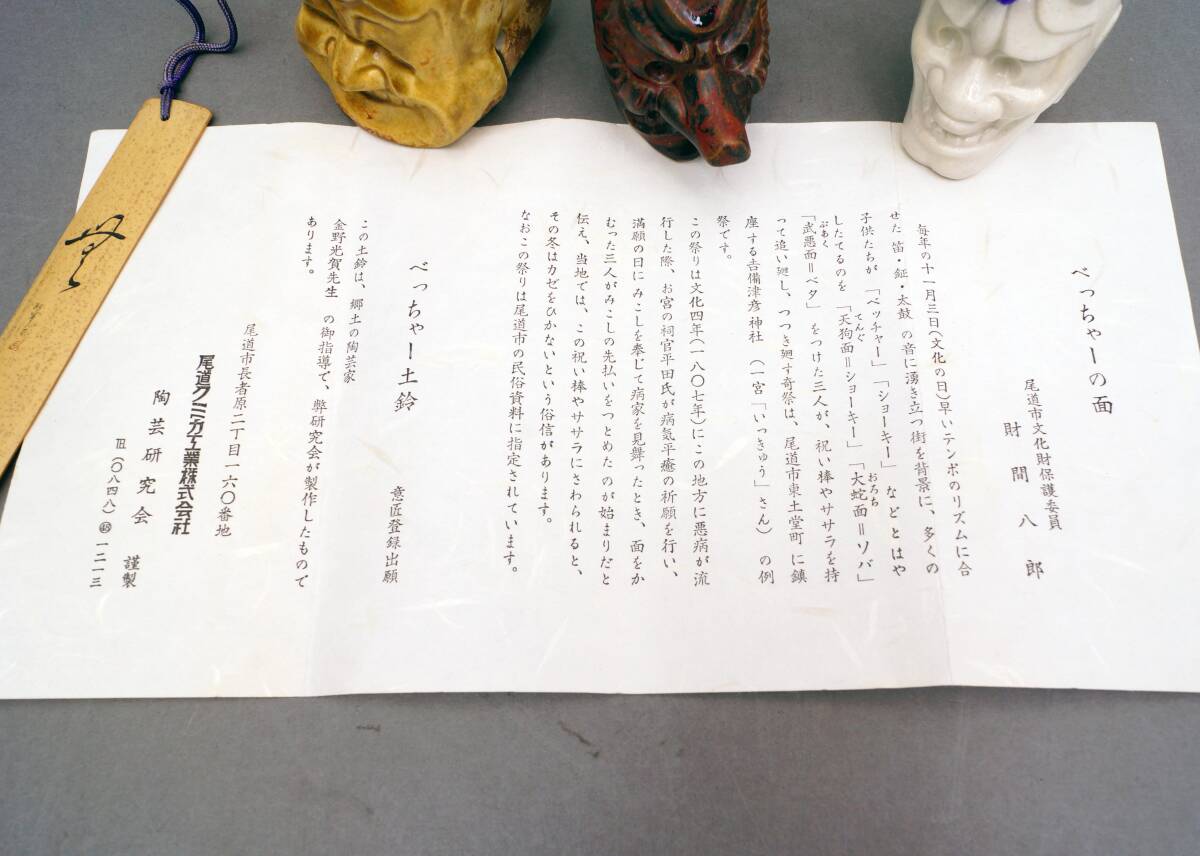 べっちゃーの面
尾道市文化財保護委員
財間八郎
毎年の十一月三日(文化の日)早いテンポのリズムに合
せた 笛・鉦・太鼓 の音に湧き立つ街を背景に、多くの
子供たちが 「ベッチャー」「ショーキー」 などとはや
したてるのを 「天狗面＝ショーキー」「大蛇面＝ソバ」
てんぐ
おろち
「武悪面＝ベタ」 をつけた三人が、祝い棒やササラを持
ぶあく
って追い廻し、つつき廻す奇祭は、尾道市東土堂町 に鎮
座する吉備津彦神社 (一宮「いっきゅう」さん) の例
祭です。
この祭りは文化四年(一八〇七年)にこの地方に悪病が流
行した際、お宮の祠官平田氏が病気平癒の祈願を行い、
満願の日にみこしを奉じて病家を見舞ったとき、面をか
むった三人がみこしの先払いをつとめたのが始まりだと
伝え、当地では、この祝い棒やササラにさわられると、
その冬はカゼをひかないという俗信があります。
なおこの祭りは尾道市の民俗資料に指定されています。
べっちゃー土鈴
意匠登録出願
この土鈴は、郷土の陶芸家
金野光賀先生 の御指導で、弊研究会が製作したもので
あります。
尾道市長者原二丁目一六〇番地
尾道クミカ工業株式会社
陶芸研究会 謹製
TEL (〇八四八) ㊺ 一二一三